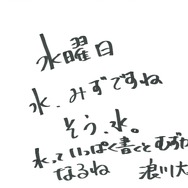 水曜日
水、みずですね
そう、水。
水っていっぱく書くとむずか
なるね 浪川大